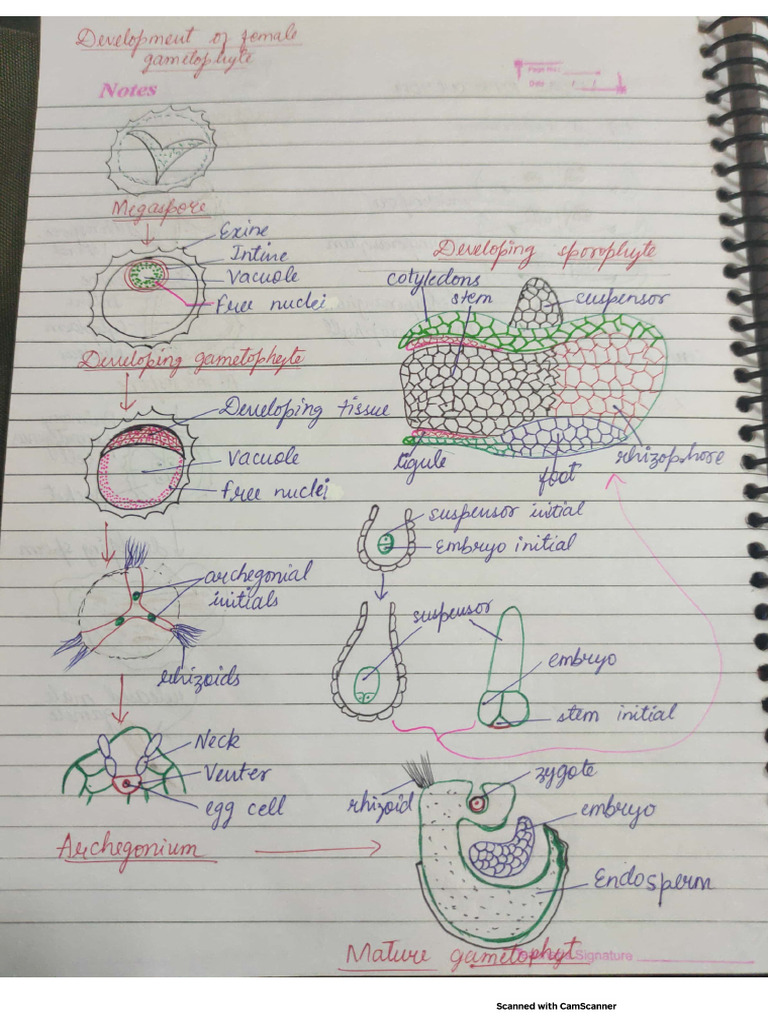 Development of female
gametophyte
Page No.:
Date :
Notes
Megaspore
Exine
Intine
Vacuole
Free nuclei
Developing gametophyte
Developing tissue
Vacuole
Free nuclei
archegonial
initials
rhizoids
Neck
Venter
egg cell
Archegonium
Developing sporophyte
cotyledons
stem
suspensor
ligule
foot
rhizophore
suspensor initial
Embryo initial
suspensor
embryo
stem initial
zygote
rhizoid
embryo
Endosperm
Mature gametophyt
Signature
Scanned with CamScanner